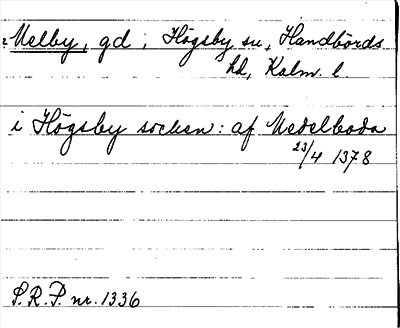 Melby, gd, Högsby sn, Handbörds
hd, Kalm. l.
i Högsby socken: af Medelboda
23/4 1378
S.R.P. nr. 1336